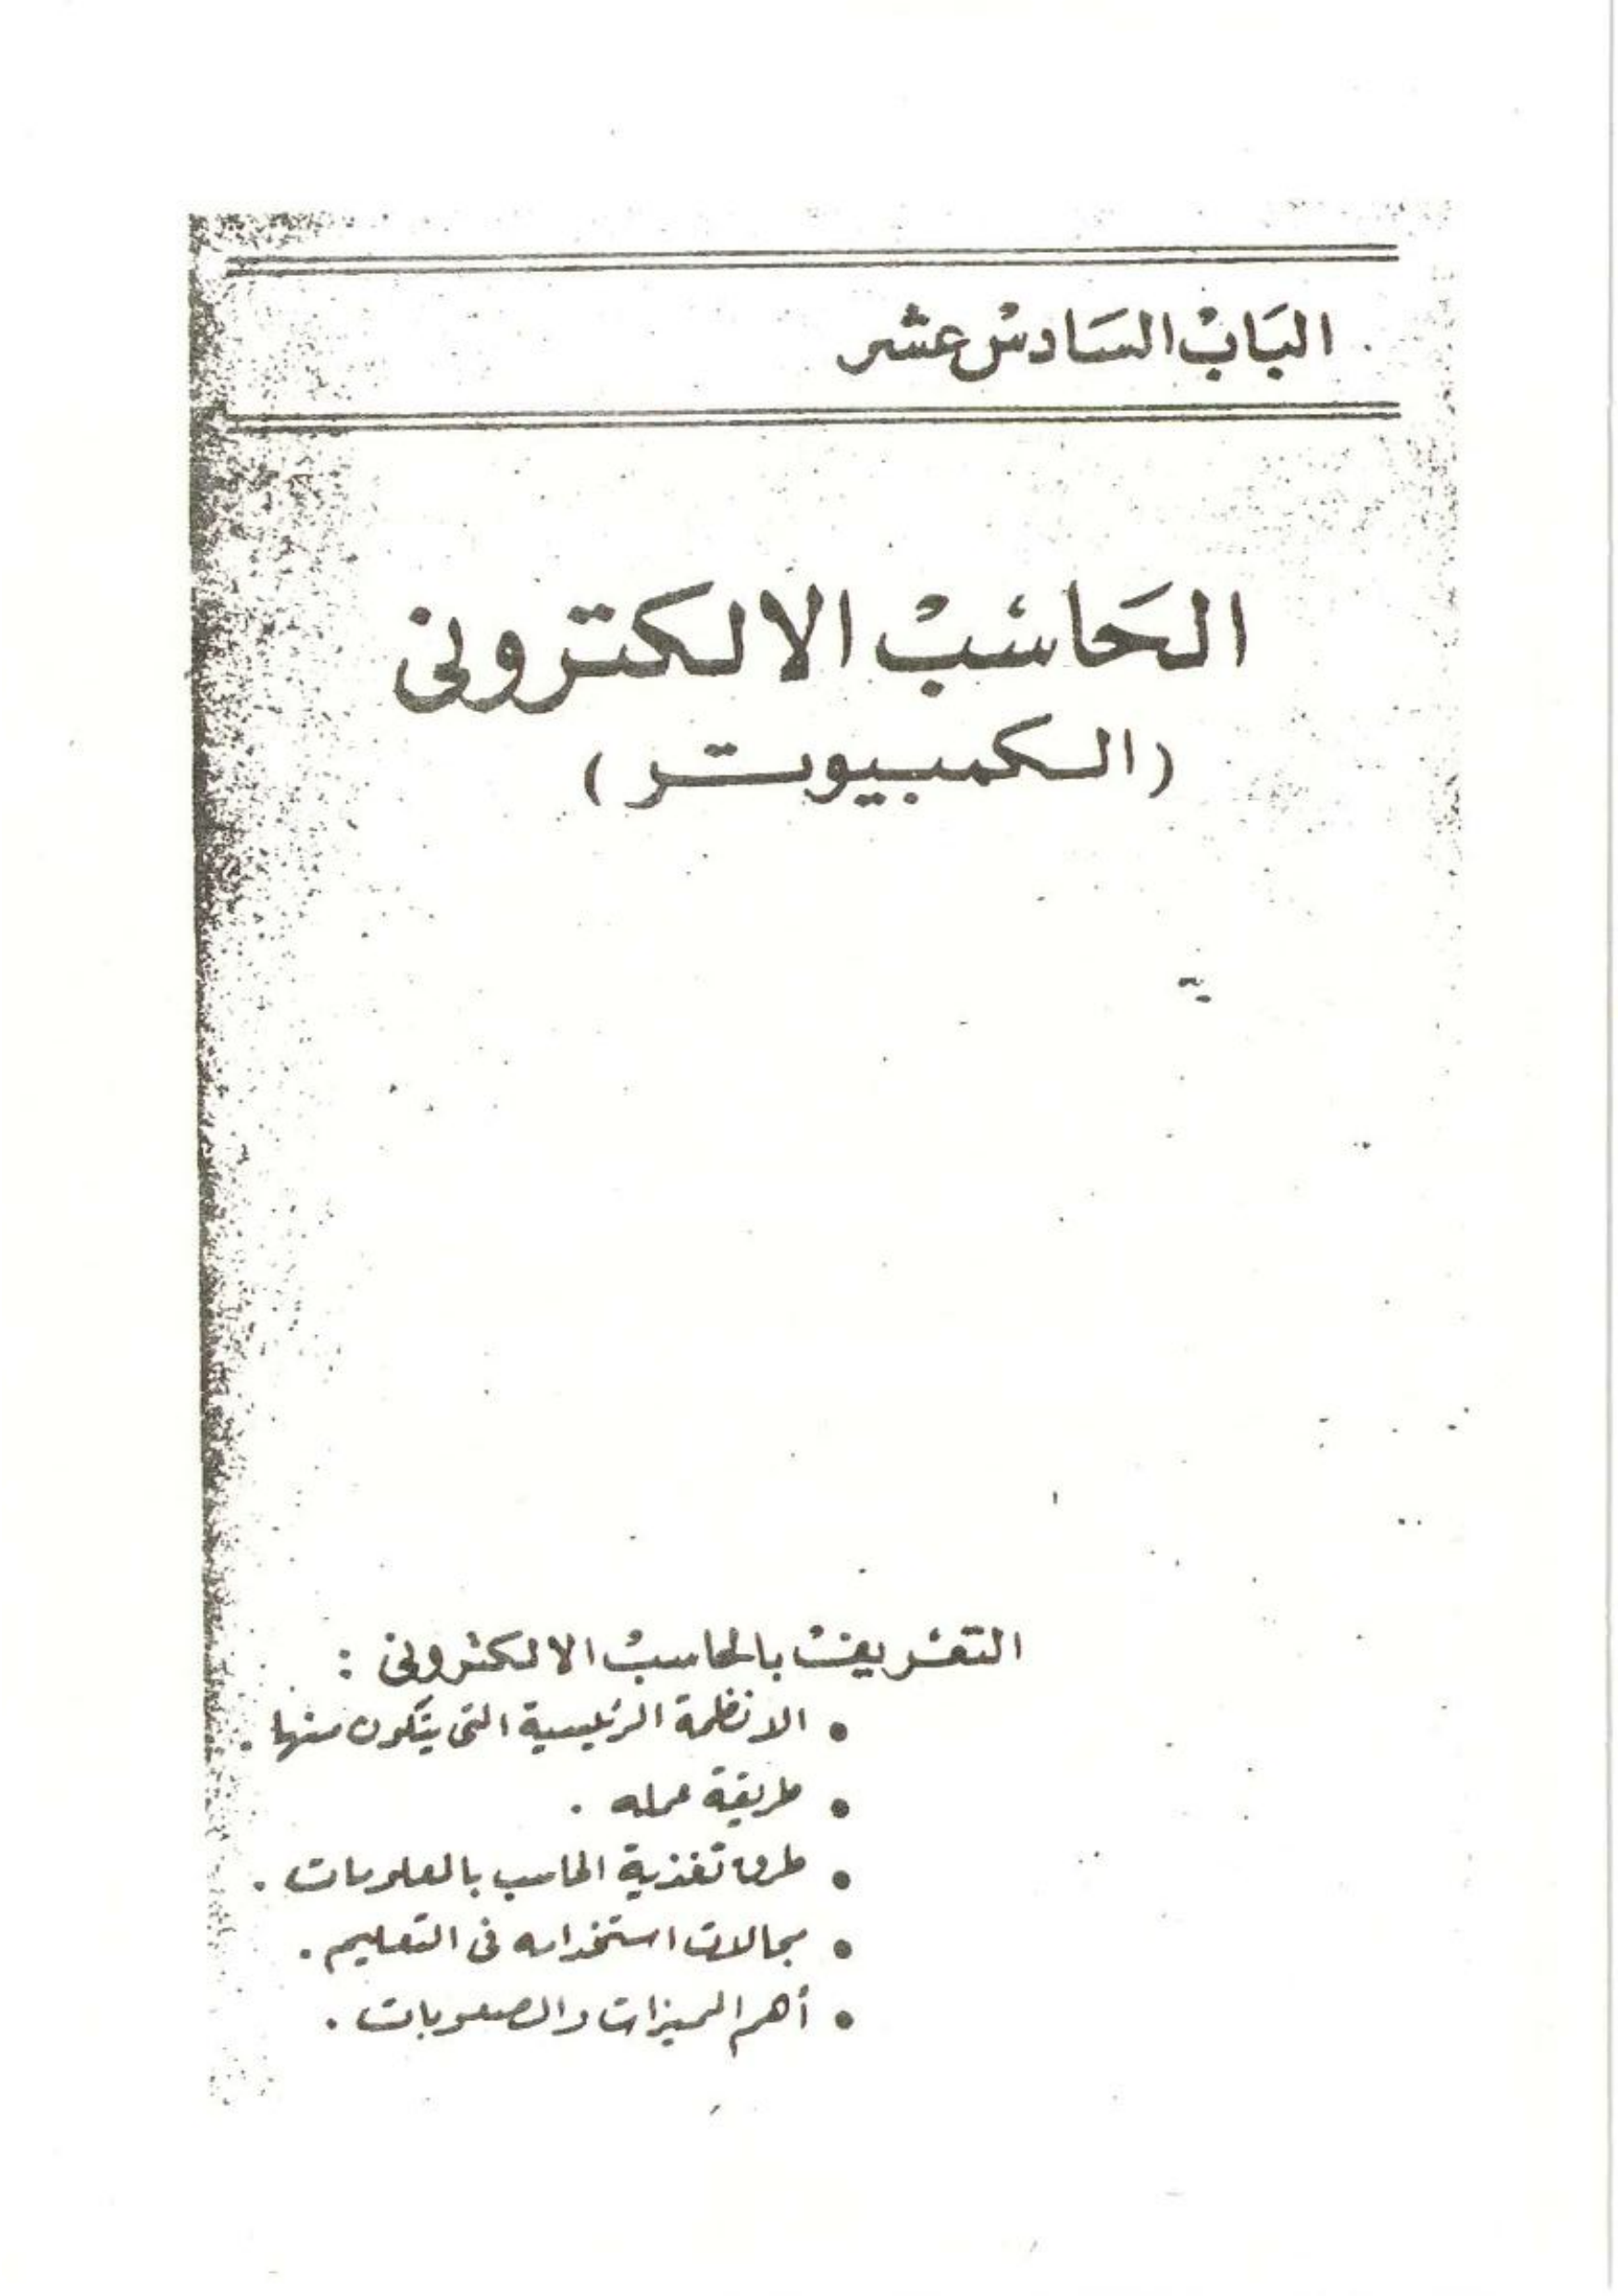 الباب السادس عشر
الحاسب الالكترونى
(الكمبيوتر)
التعريف بالحاسب الالكترونى :
• الانظمة الرئيسية التى يتكون منها .
• طريقة عمله .
• طرق تغذية الحاسب بالمعلومات .
• مجالات استخدامه فى التعليم .
• أهم المميزات والصعوبات .